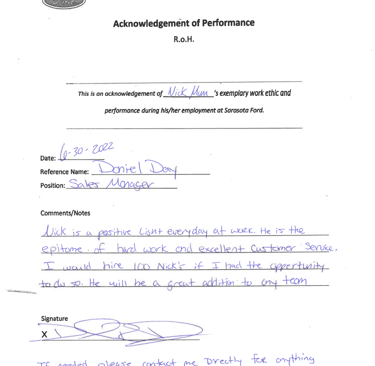 Acknowledgement of Performance
R.o.H.
This is an acknowledgement of Nick Mum 's exemplary work ethic and
performance during his/her employment at Sarasota Ford.
Date: 6-30-2022
Reference Name: Daniel Day
Position: Sales Manager
Comments/Notes
Nick is a positive Light everyday at work. He is the
epitome of hard work and excellent Customer Service.
I would hire 100 Nick's if I had the opportunity
to do so. He will be a great addition to any team
Signature
X
If needed please contact me Directly for anything